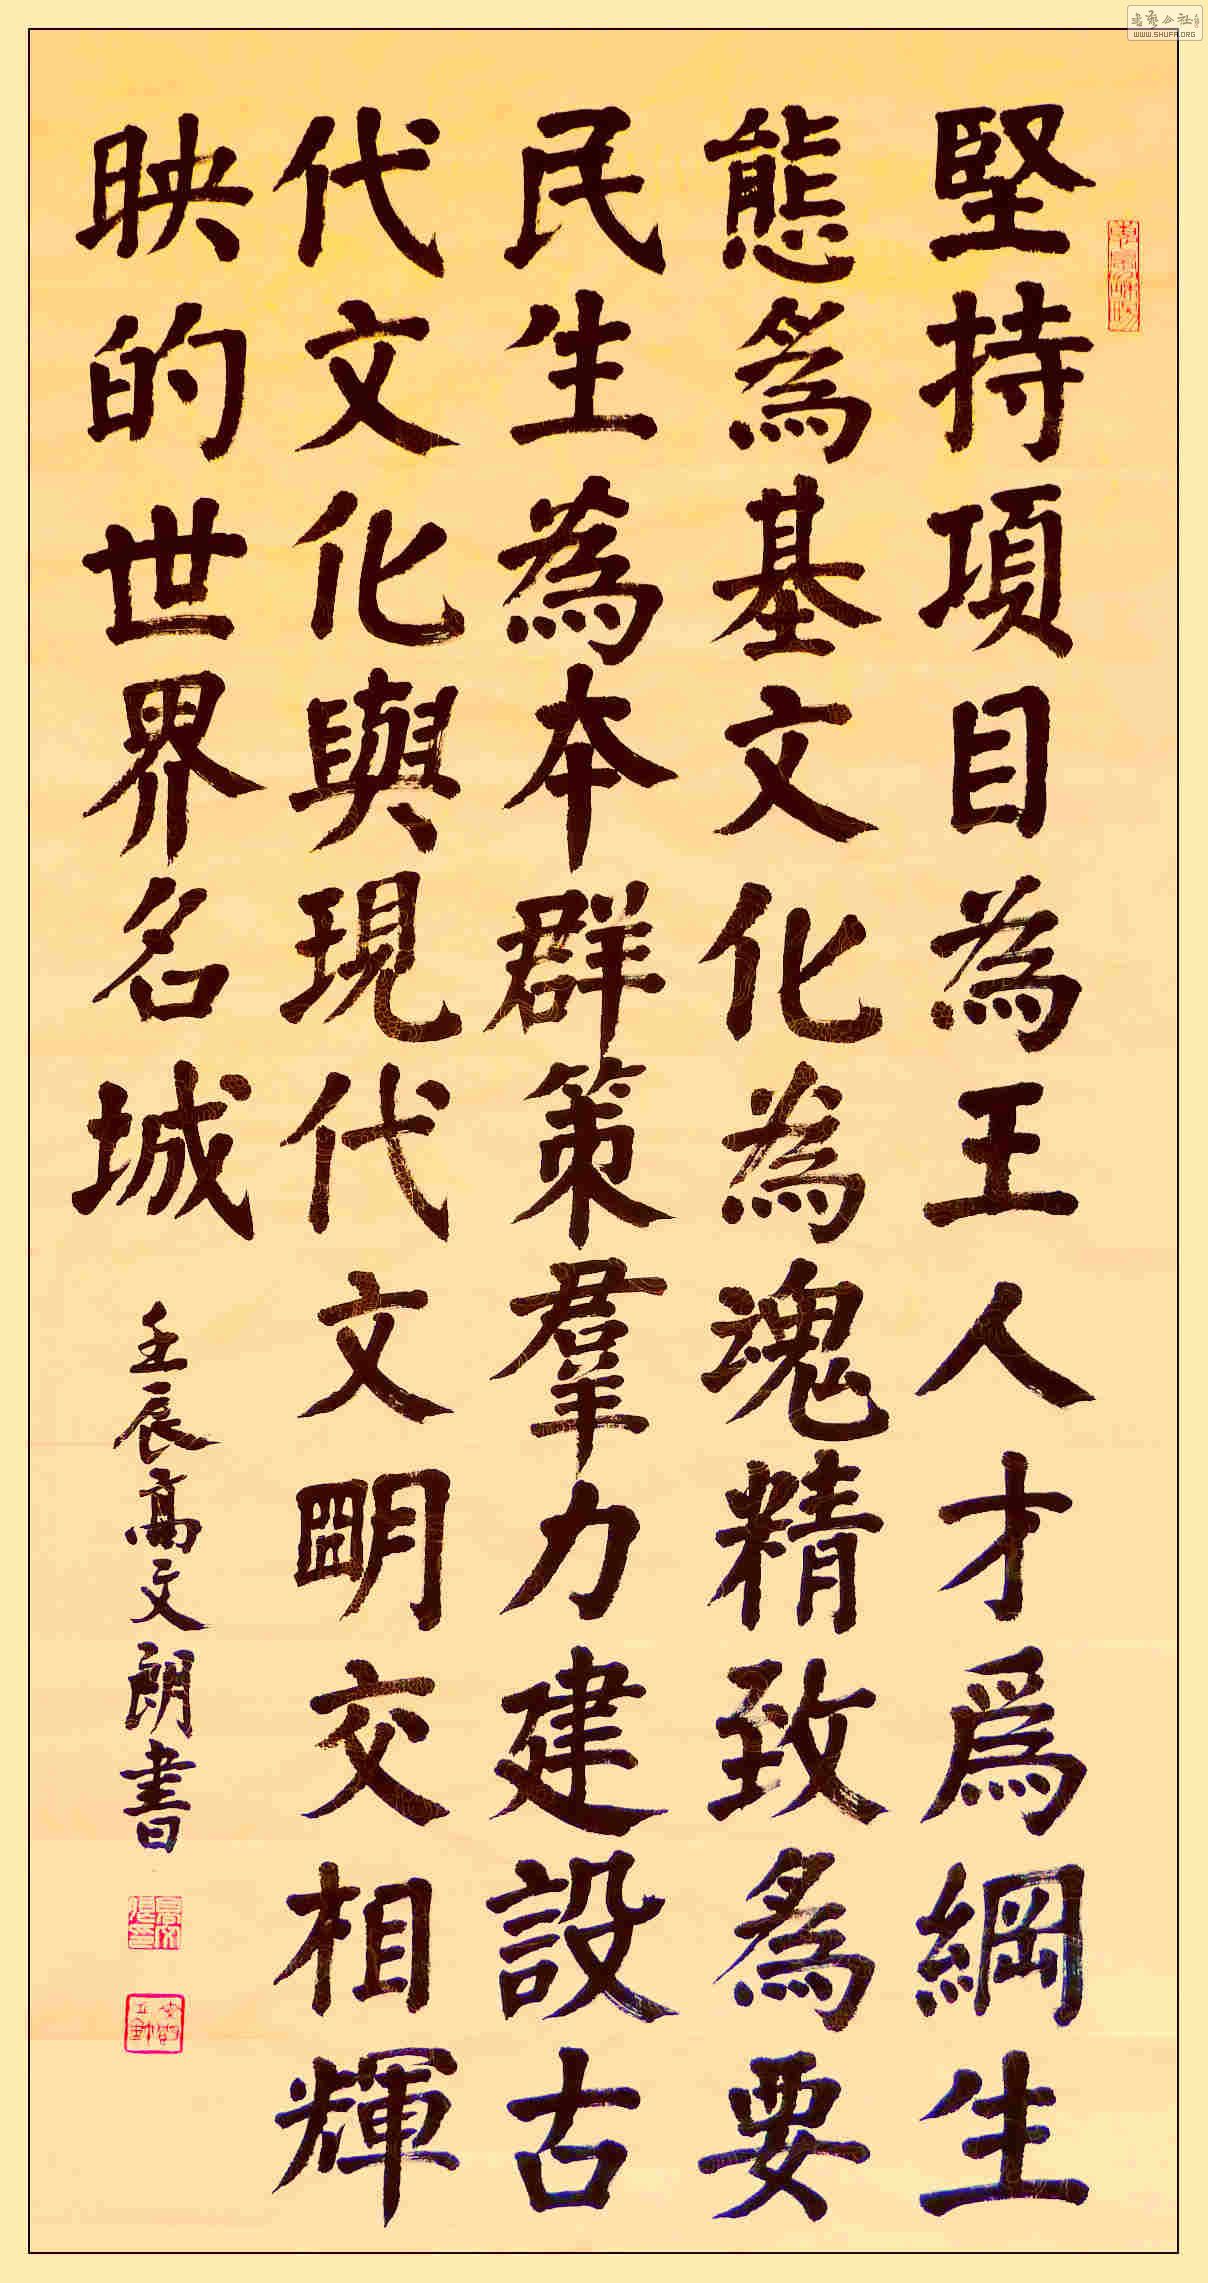 堅持項目為王人才爲綱生
態為基文化為魂精致為要
民生為本群策羣力建設古
代文化與現代文明交相輝
映的世界名城
壬辰高文朗書
WWW.SHUFA.ORG